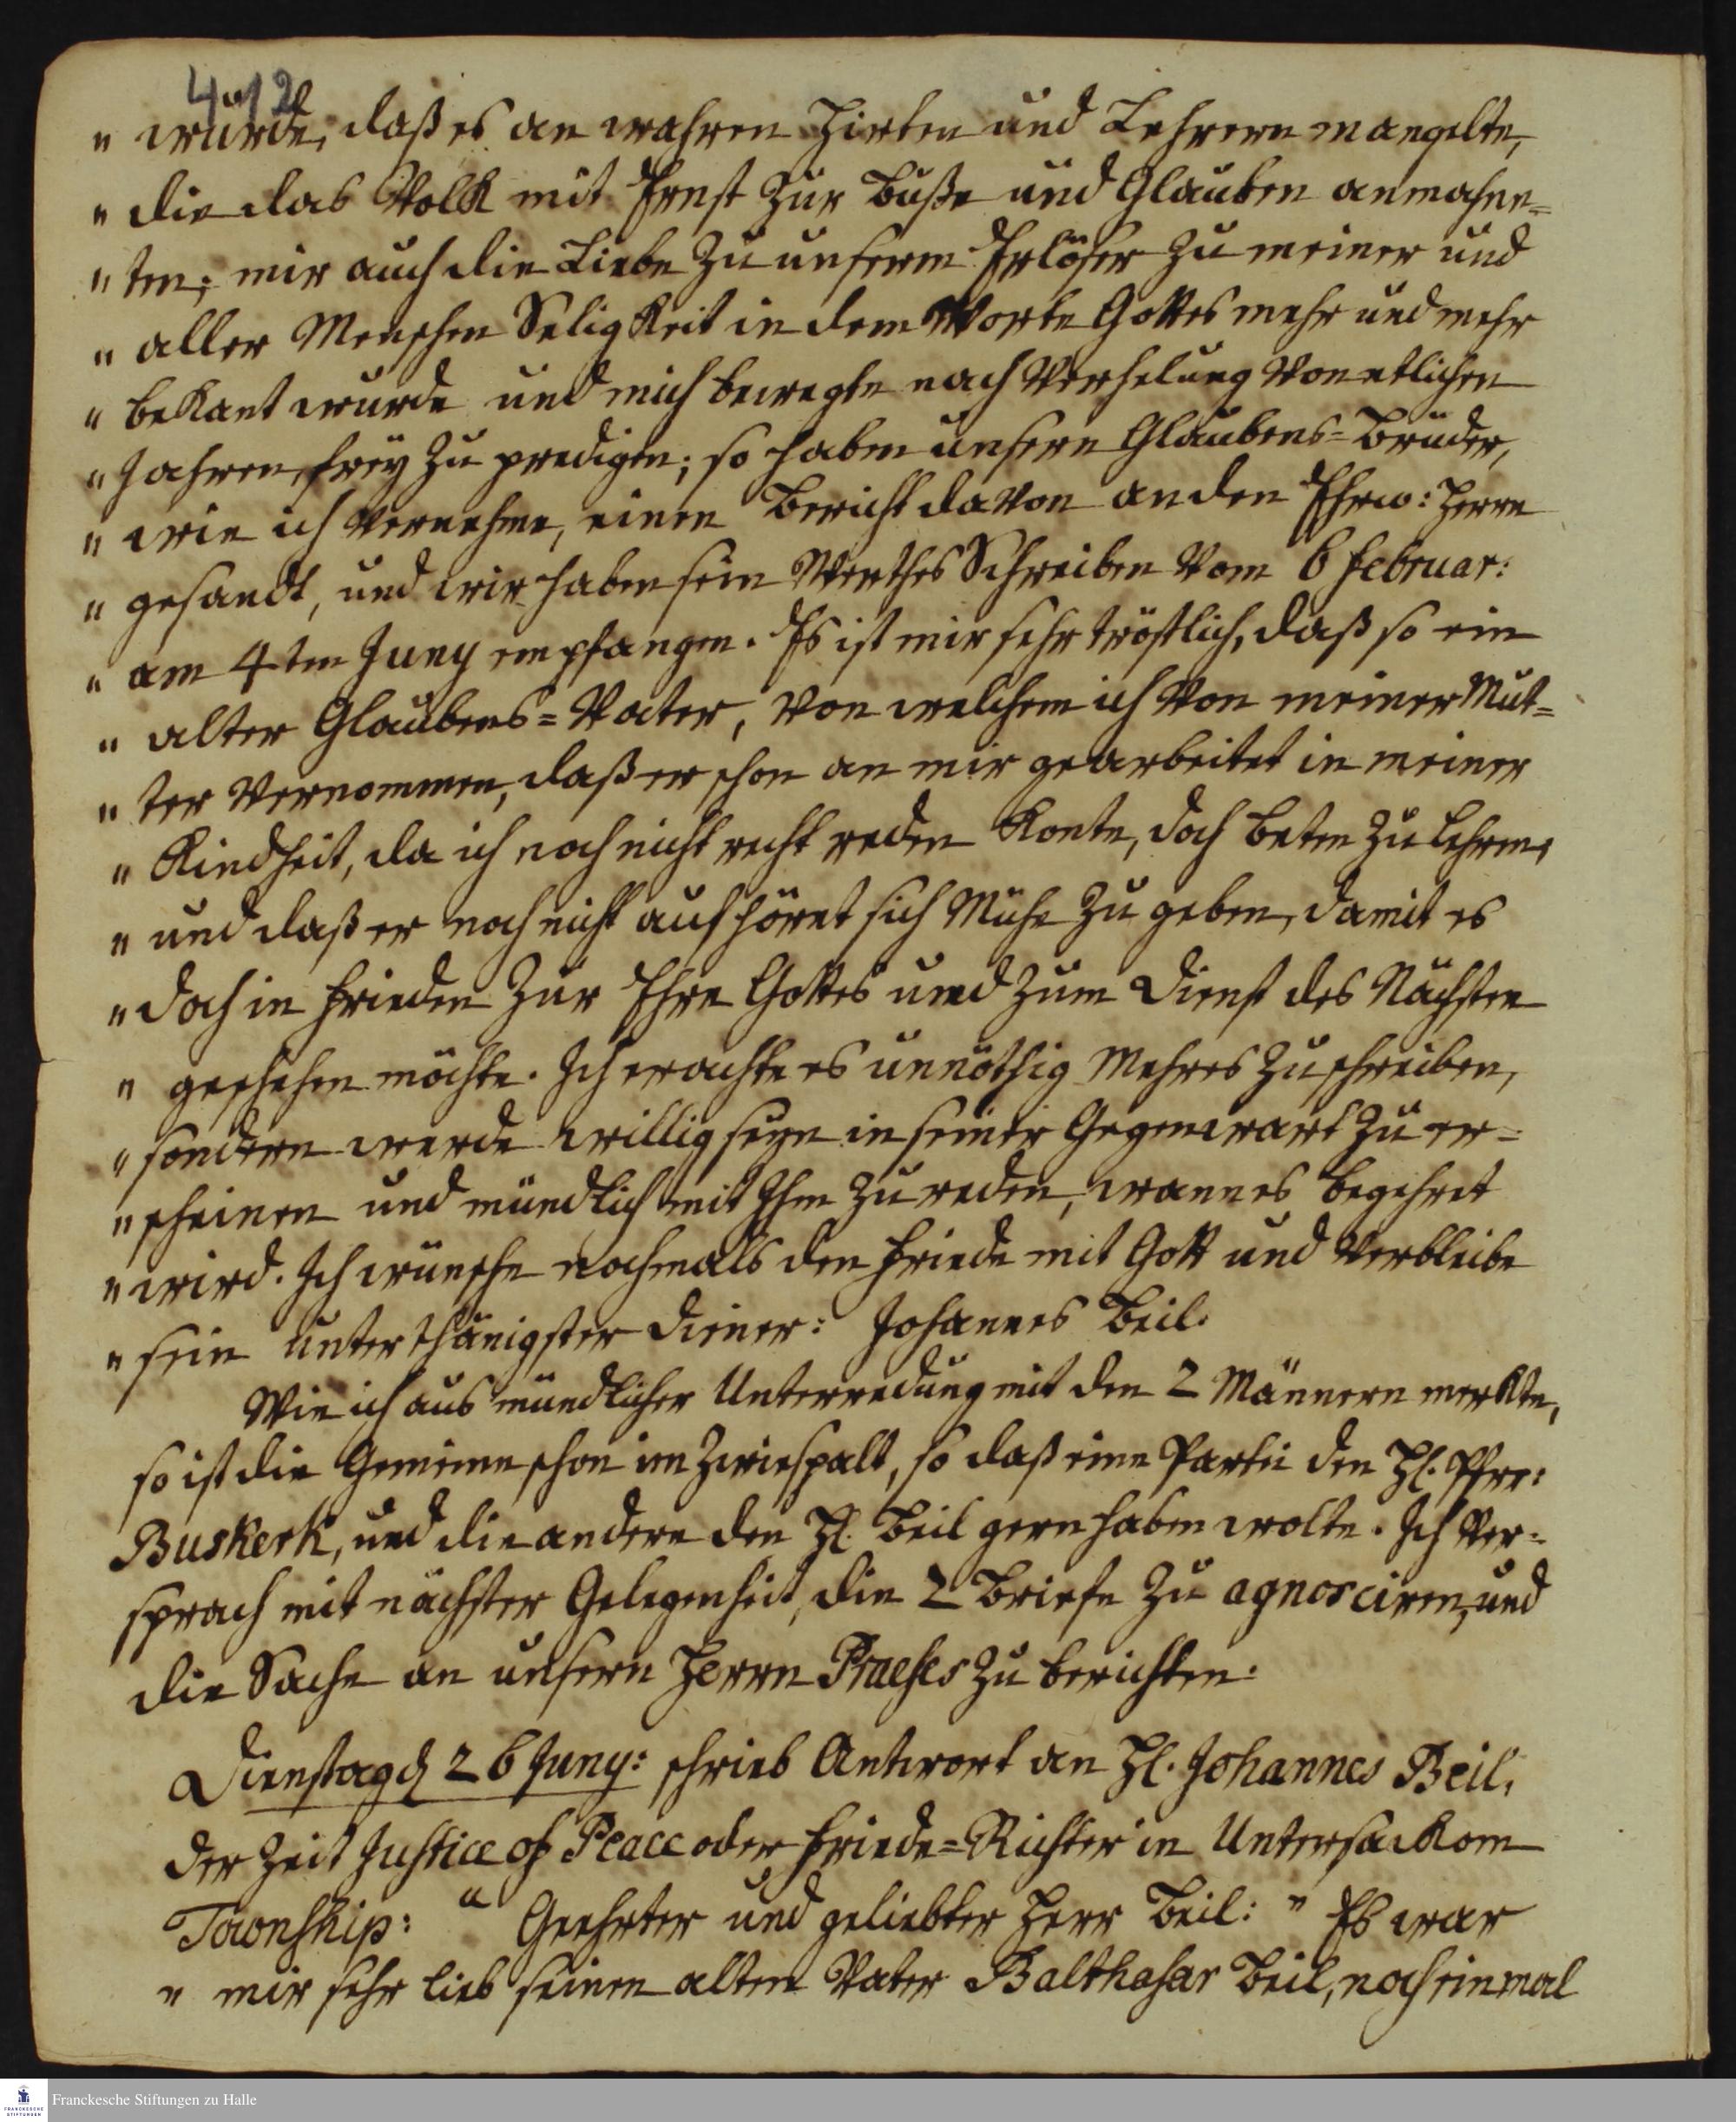 412
" würde, daß es an wahren Hirten und Lehrern mangelte,
" die das Volk mit Ernst zur Buße und Glauben anmahne=
" ten; mir auch die Liebe zu unserm Erlöser zu meiner und
" aller Menschen Seligkeit in dem Worte Gottes mehr und mehr
" bekant wurde und mich bewegte nach Verhelung von etlichen
" Jahren, frey zu predigen; so haben unsere Glaubens=Brüder,
" wie ich vernehme, einen Bericht davon an den Ehrw: Herrn
" gesandt, und wir haben sein Werthes Schreiben vom 6 Februar:
" am 4ten Juny empfangen. Es ist mir sehr tröstlich, daß so ein
" alter Glaubens=Vater, von welchem ich von meiner Mut=
" ter vernommen, daß er schon an mir gearbeitet in meiner
" Kindheit, da ich noch nicht recht reden konte, doch beten zu lehren,
" und daß er noch nicht aufhöret sich Mühe zu geben, damit es
" doch in Frieden zur Ehre Gottes und zum Dienst des Nächsten
" geschehen möchte. Ich erachte es unnöthig Mehres zu schreiben,
" sondern werde willig seyn in seiner Gegenwart zu er=
" scheinen und mündlich mit Ihm zu reden, wann es begehret
" wird. Ich wünsche nochmals den Friede mit Gott und verbleibe
" sein unterthänigster Diener: Johannes Beil.
Wie ich aus mündlicher Unterredung mit den 2 Männern merkte,
so ist die Gemeine schon im Zwiespalt, so daß eine Partei den H. Pfr:
Buskerk, und die andere den H. Beil gern haben wolte. Ich ver=
sprach mit nächster Gelegenheit, die 2 Briefe zu agnosciren, und
die Sache an unsern Herrn Praeses zu berichten.
Dienstag d 26 Juny: schrieb Antwort an H. Johannes Beil,
der Zeit Justice of Peace oder Friede=Richter in Untersackom
Township: " Geehrter und geliebter Herr Beil: " Es war
" mir sehr lieb seinen alten Vater Balthasar Beil, noch einmal
Franckesche Stiftungen zu Halle
FRANCKESCHE
STIFTUNGEN